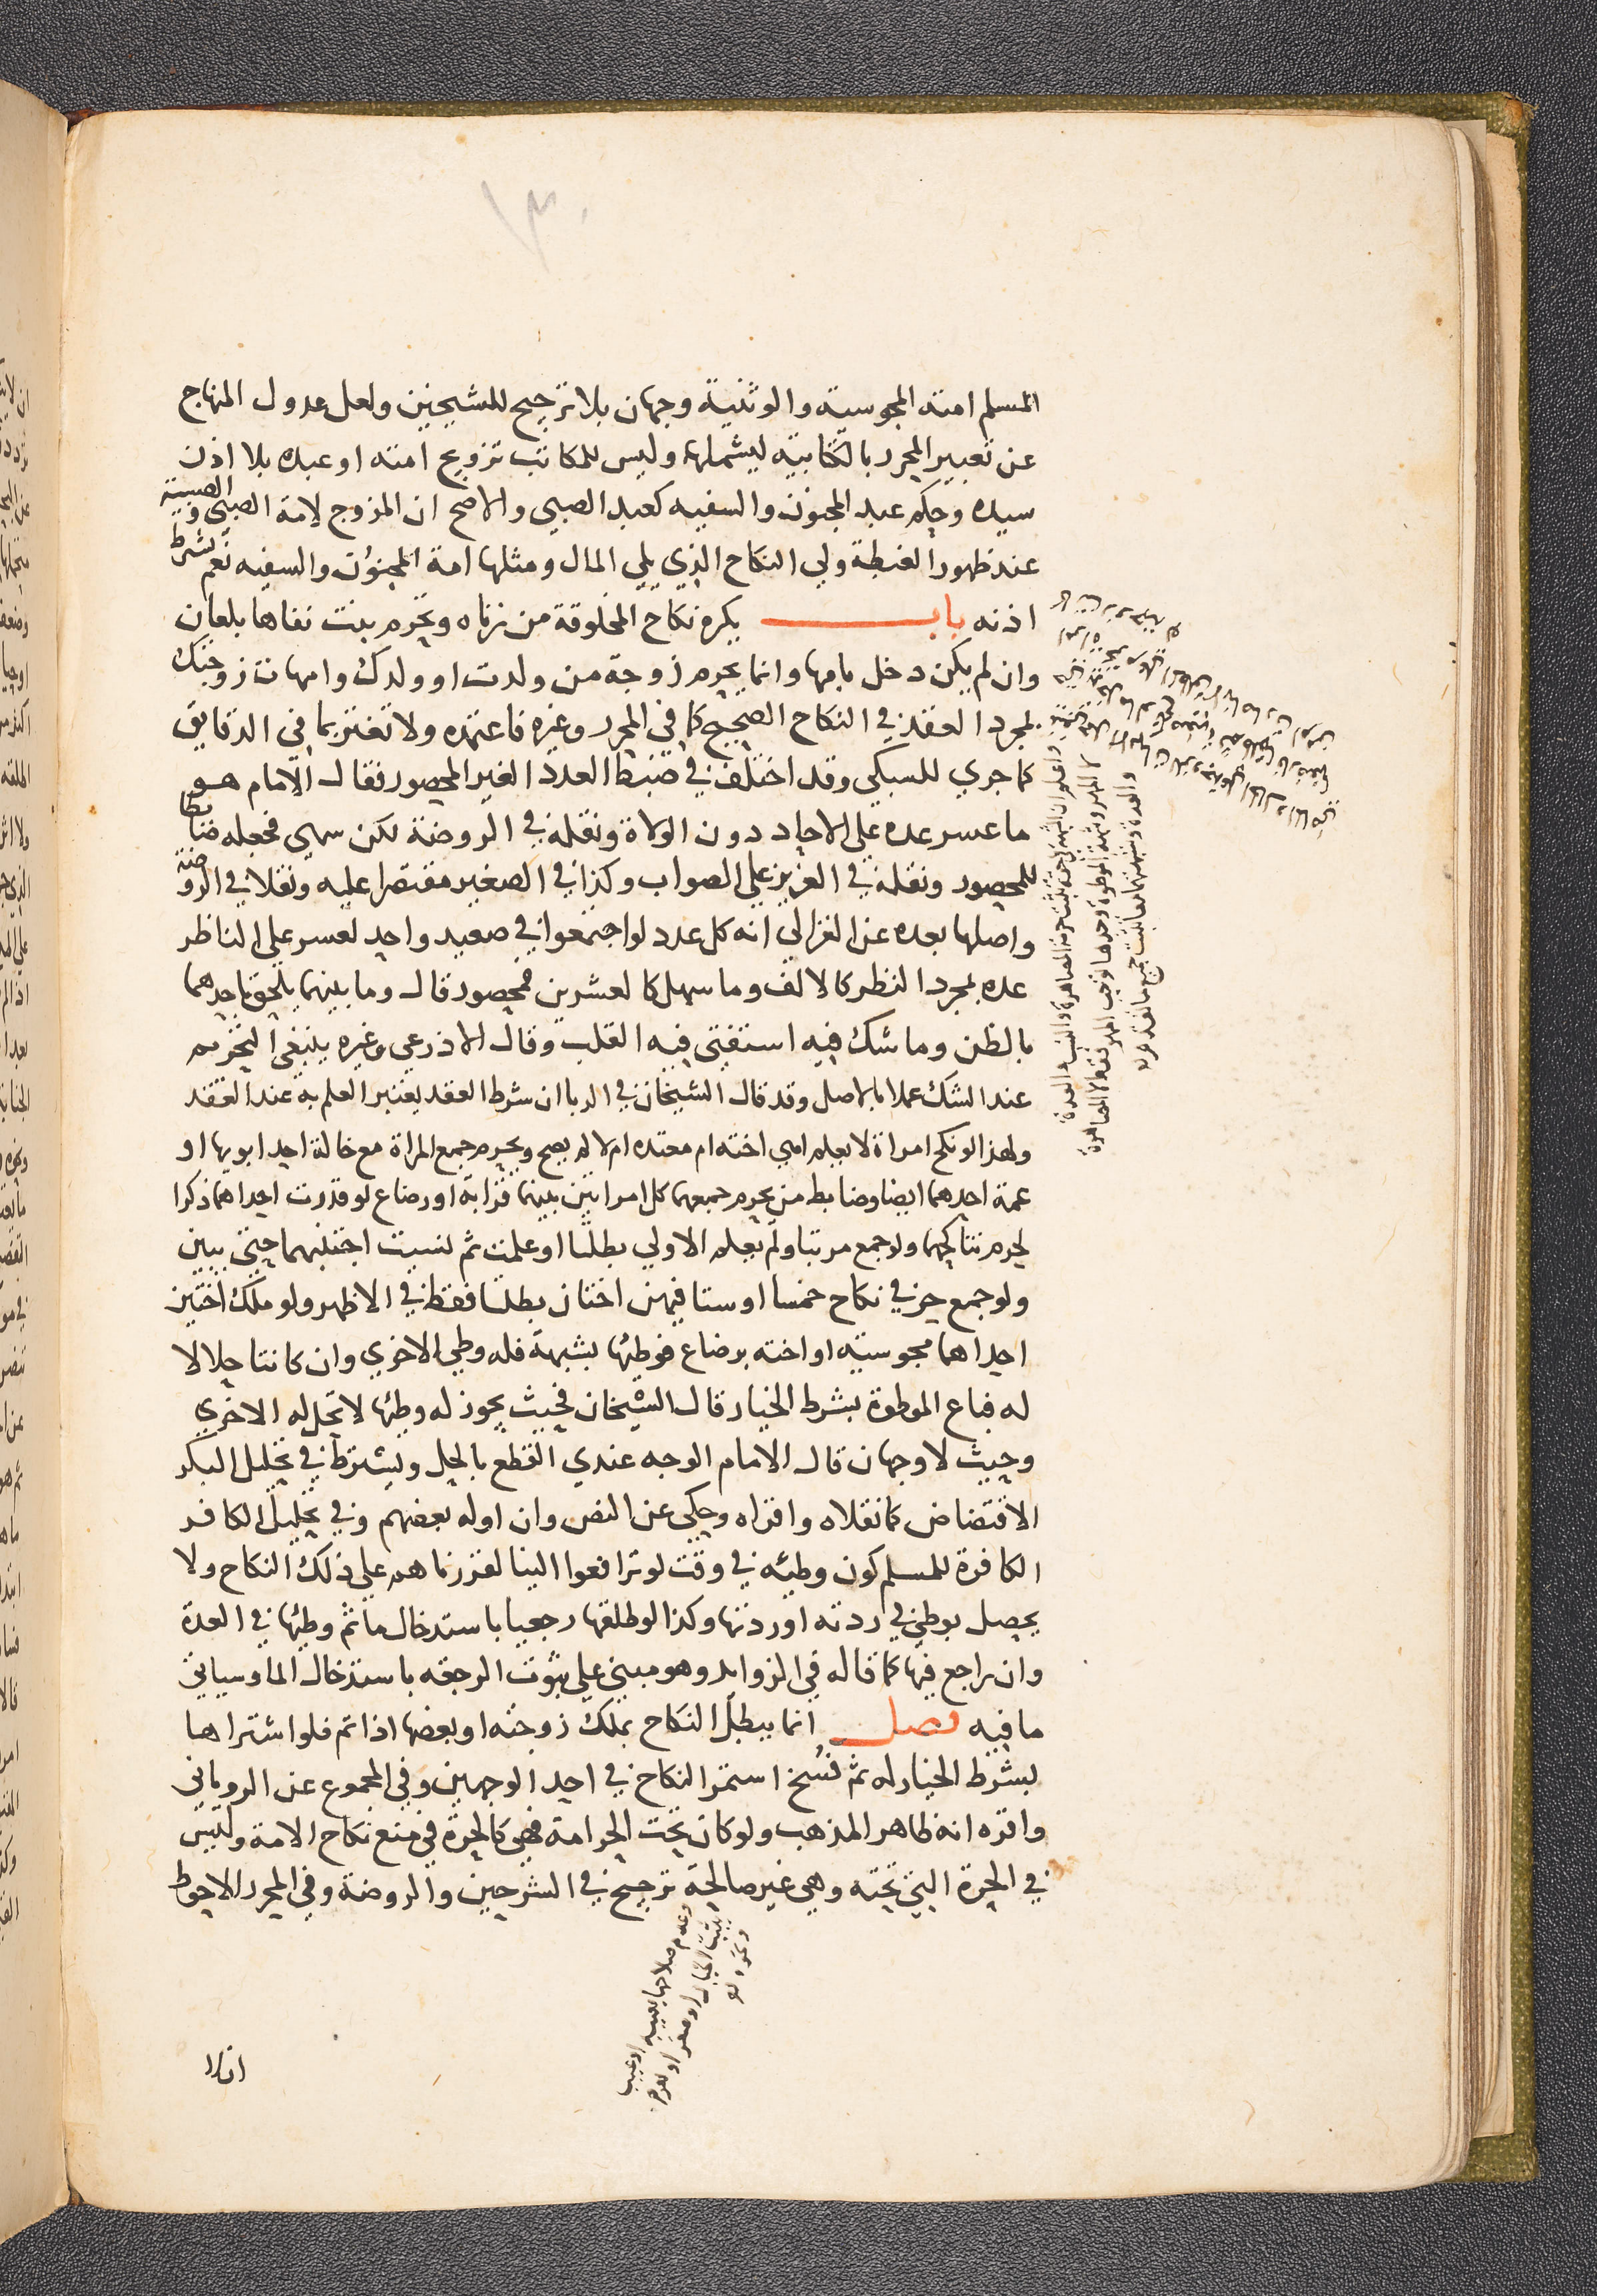 ١٣٠
المسلم امته المجوسية والوثنية وجهان بلا ترجيح للشيخين ولعل عدول المنهاج
عن تعبير المحرر بالكتابيه ليشملها وليس للمكاتب تزويج امته او عبده بلا اذن
سيده وحكم عبد المجنون والسفيه كعبد الصبي والاصح ان المزوج لامة الصبي والصبية
عند ظهور الغبطة ولي النكاح الذي يلي المال ومثلها امة المجنون والسفيه نعم بشرط
اذنه باب يكره نكاح المخلوقة من زناه ويحرم بنت نفاها بلعان
وان لم يكن دخل بامها وانما يحرم زوجة من ولدت او ولدك وامهات زوجتك
بمجرد العقد في النكاح الصحيح كما في المحرر وغيره فاعتمده ولا تغتر بما في الدقايق
كما جري للسبكي وقد اختلف في ضبط العدد الغير المحصور فقال الامام هو
ما عسر عده علي الاحاد دون الولاة ونقله في الروضة لكن سهي فجعله ضابطا
للمحصور ونقله في العزيز علي الصواب وكذا في الصغير مقتصرا عليه ونقلا في الروضة
واصلها بعده عن الغزالي انه كل عدد لو اجتمعوا في صعيد واحد لعسر علي الناظر
عده بمجرد النظر كالالف وما سهل كالعشرين فمحصور قال وما بينهما يلحق باحدهما
بالظن وما شك فيه استفتي فيه القلب وقال الاذرعي وغيره ينبغي التحريم
عند الشك عملا بالاصل وقد قال الشيخان في الربا ان شرط العقد يعتبر العلم به عند العقد
ولهذا لو نكح امراة لا يعلم اهي اخته ام معتده ام لا لم يصح ويحرم جمع المراة مع خالة احد ابويها او
عمة احدهما ايضا وضابط من يحرم جمعهما كل امراتين بينهما قرابة او رضاع لو قدرت احداهما ذكرا
لحرم تناكحهما ولو جمع مرتبا ولم يعلم الاولي بطلتا او علمت ثم نسيت اجتنبهما حتي يبين
ولو جمع حر في نكاح خمسا او ستا فيهن اختان بطلتا فقط في الاظهر ولو ملك اختين
احداهما مجوسية او اخته برضاع فوطئها بشبهة فله وطي الاخري وان كانتا حلالا
له فباع الموطوة بشرط الخيار قال الشيخان فحيث يجوز له وطئها لا تحل له الاخري
وحيث لا وجهان قال الامام الوجه عندي القطع بالحل ويشترط في تحليل البكر
الاقتضاض كما نقلاه واقراه وحكي عن النص وان اوله بعضهم وفي تحليل الكافر
الكافرة للمسلم كون وطئه في وقت لو ترافعوا الينا لقررناهم علي ذلك النكاح ولا
يحصل بوطئ في ردته او ردتها وكذا لو طلقها رجعيا باستدخال ما ثم وطئها في العدة
وان راجع فيها كما قاله في الزوايد وهو مبني علي ثبوت الرجعه باستدخال الما وسياتي
ما فيه فصل انما يبطل النكاح بملك زوجته او بعضها اذا تم فلو اشتراها
بشرط الخيار له ثم فسخ استمر النكاح في احد الوجهين وفي المجموع عن الروياني
واقره انه ظاهر المذهب ولو كان تحت الحر امة فهي كالحرة في منع نكاح الامة وليس
في الحرة التي تحته وهي غير صالحة ترجيح في الشرحين والروضة وفي المحرر الاحوط
واعلم ان الشبهة في حقه تثبت حرمة المصاهرة والنسب والعدة
لا المهر وشبهة الموطوة وحدها توجب المهر فقط لا المصاهرة
والعدة وشبهتهما معا تثبت جميع ما تقدم
وعدم صلاحها بغيبة او عيب